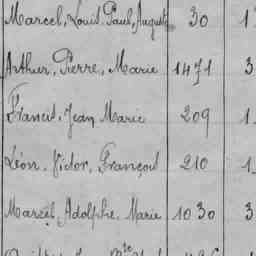 Marcel, Louis, Paul, Auguste 30 1
Arthur, Pierre, Marie 1471 3
Francis, Jean, Marie 209 1
Léon, Victor, François 210 1
Marcel, Adolphe, Marie 1030 3